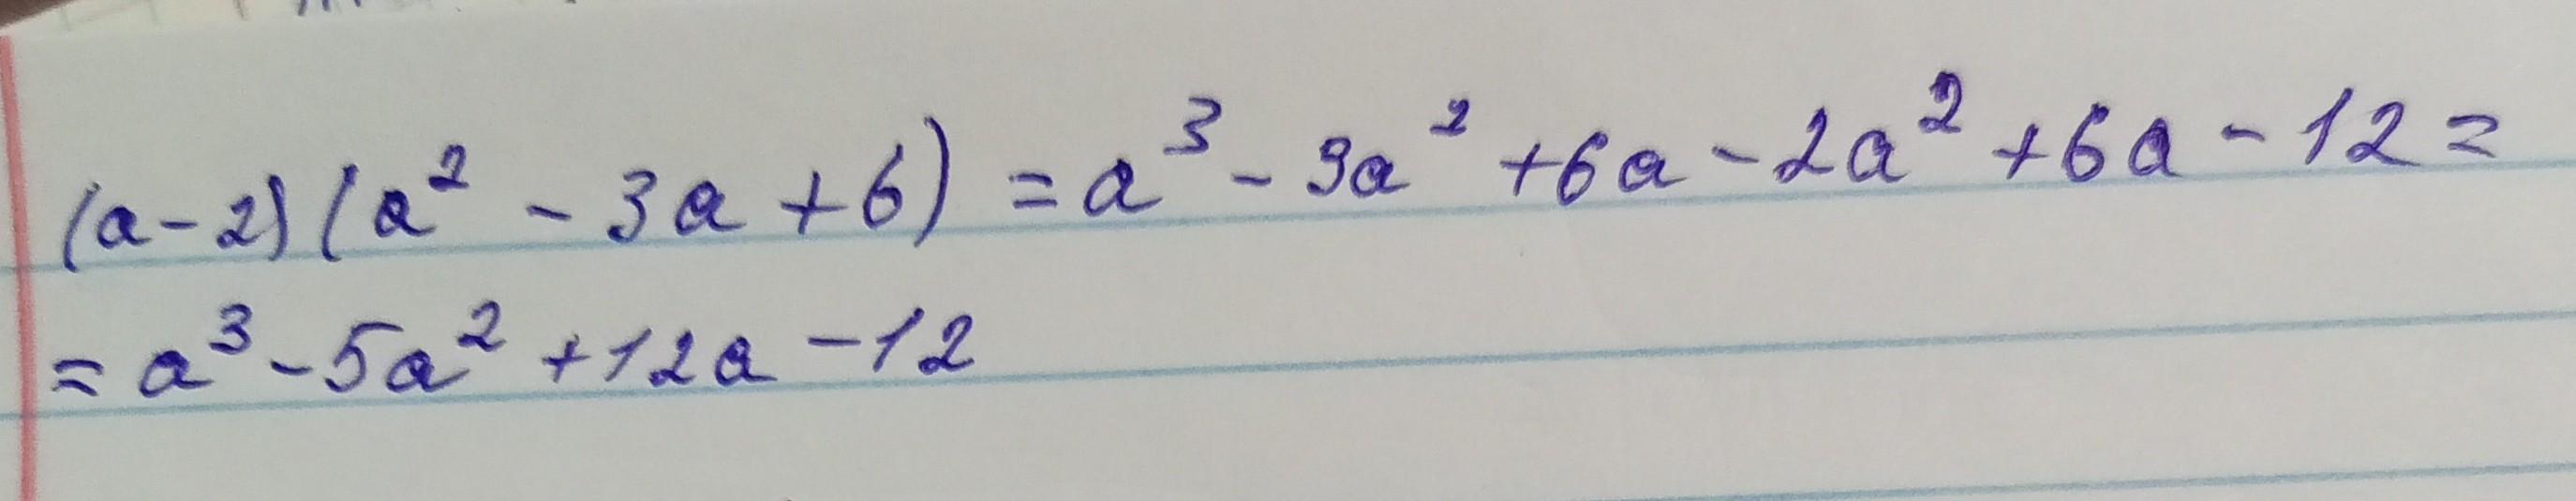 (a-2)(a² - 3a + 6) = a³ - 3a² + 6a - 2a² + 6a - 12 =
= a³ - 5a² + 12a - 12